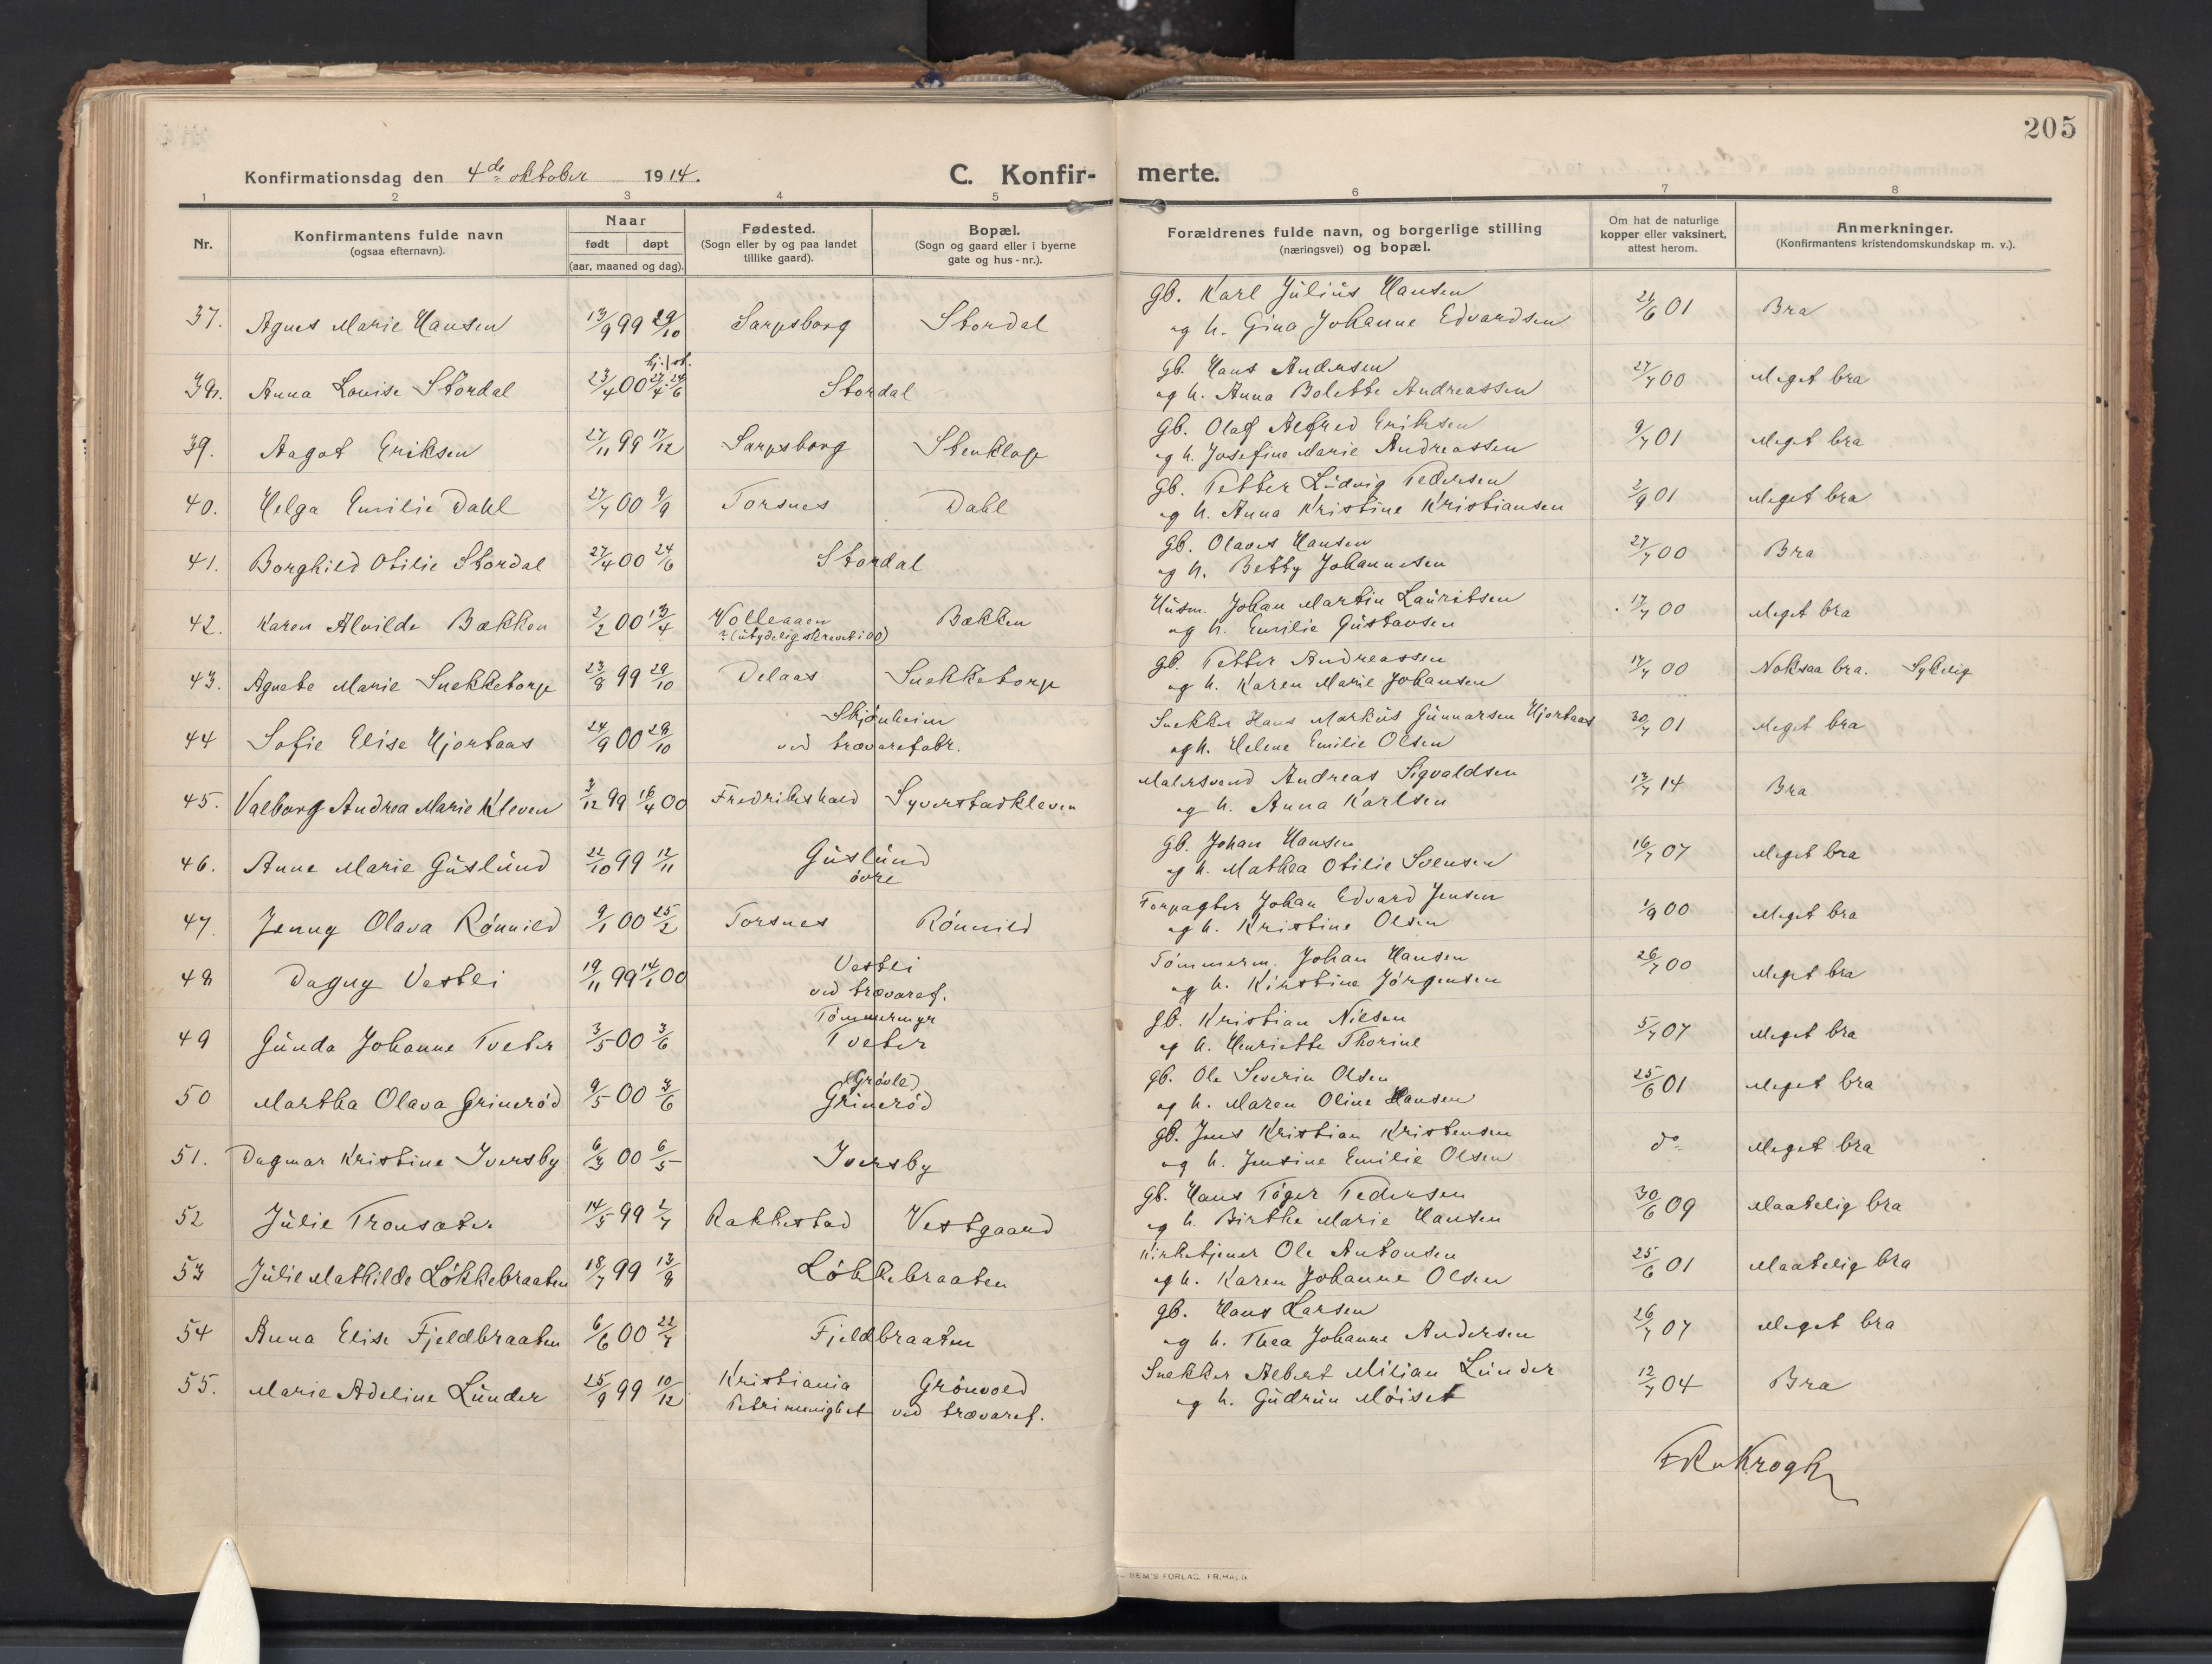 205
Konfirmationsdag den 4de oktober 1914. C. Konfir- merte.
1 2 3 4 5 6 7 8
Nr. Konfirmantens fulde navn (ogsaa efternavn). Naar født døpt (aar, maaned og dag). Fødested. (Sogn eller by og paa landet tillike gaard). Bopæl. (Sogn og gaard eller i byerne gate og hus-nr.). Forældrenes fulde navn, og borgerlige stilling (næringsvei) og bopæl. Om hat de naturlige kopper eller vaksinert, attest herom. Anmerkninger. (Konfirmantens kristendomskundskap m. v.).
37. Agnes Marie Hansen 13/9 99 29/10 Sarpsborg Stordal Gb. Karl Julius Hansen 21/6 01 Bra
og h. Gina Johanne Edvardsen
hj. | st.
38. Anna Louise Stordal 23/4 00 27/4 24/6 Stordal Gb. Hans Andersen 27/7 00 Meget bra
og h. Anna Bolette Andreassen
39. Aagot Eriksen 27/11 99 17/12 Sarpsborg Stenklop Gb. Olaf Alfred Eriksen 9/7 01 Meget bra
og h. Josefine Marie Andreassen
40. Helga Emilie Dahl 27/7 00 9/9 Torsnes Dahl Gb. Petter Ludvig Pedersen 2/9 01 Meget bra
og h. Anna Kristine Kristiansen
41. Borghild Otilie Stordal 27/4 00 24/6 Stordal Gb. Olaves Hansen 27/7 00 Bra
og h. Betty Johannesen
42. Karen Alvilde Bækken 2/2 00 13/4 Volleaaen Bækken Husm. Johan Martin Lauritsen 17/7 00 Meget bra
? (utydelig skrevet i 00) og h. Emilie Gustavsen
43. Agnete Marie Snekketorp 23/8 99 29/10 Delaas Snekketorp Gb. Petter Andreassen 17/7 00 Noksaa bra. Sykelig
og h. Karen Marie Johansen
44 Sofie Elise Hjortaas 24/9 00 29/10 Skjønheim Snekker Hans Markus Gunnarsen Hjortaas 30/7 01 Meget bra
ved trævarefabr. og h. Helene Emilie Olsen
45. Valborg Andrea Marie Kleven 3/12 99 16/4 00 Fredrikshald Syverstadkleven Malersvend Andreas Sigvaldsen 13/7 14 Bra
og h. Anna Karlsen
46. Anne Marie Guslund 22/10 99 12/11 Guslund Gb. Johan Hansen 16/7 07 Meget bra
øvre og h. Mathea Otilie Svensen
47. Jenny Olava Rønnild 9/1 00 25/2 Torsnes Rønnild Forpagter Johan Edvard Jensen 1/9 00 Meget bra
og h. Kristine Olsen
48 Dagny Vestli 19/11 99 14/1 00 Vestli Tømmerm. Johan Hansen 26/7 00 Meget bra
ved trævaref. og h. Kirstine Jørgensen
Tømmermyr
49 Gunda Johanne Tveter 3/5 00 3/6 Tveter Gb. Kristian Nilsen 5/7 07 Meget bra
og h. Henriette Thorine
(Grøvle)
50 Martha Olava Grimerød 9/5 00 3/6 Grimerød Gb. Ole Severin Olsen 25/6 01 Meget bra
og h. Maren Oline Hansen
51. Dagmar Kristine Iversby 6/3 00 6/5 Iversby Gb. Jens Kristian Kristensen do Meget bra
og h. Jensine Emilie Olsen
52 Julie Tronsæter 14/5 99 2/7 Rakkestad Vestgaard Gb. Hans Tøger Pedersen 30/6 09 Maatelig bra
og h. Birthe Marie Hansen
53 Julie Mathilde Løkkebraaten 18/7 99 13/8 Løkkebraaten Kirketjener Ole Antonsen 25/6 01 Maatelig bra
og h. Karen Johanne Olsen
54 Anna Elise Fjeldbraaten 6/6 00 22/7 Fjeldbraaten Gb. Hans Larsen 26/7 07 Meget bra
og h. Thea Johanne Andersen
55. Marie Adeline Lunder 25/9 99 10/12 Kristiania Grønvold Snekker Albert Milian Lunder 12/7 04 Bra
Petri menighet ved trævaref. og h. Gudrun Møiset
Krogh
SEM'S FORLAG, FR.HALD.